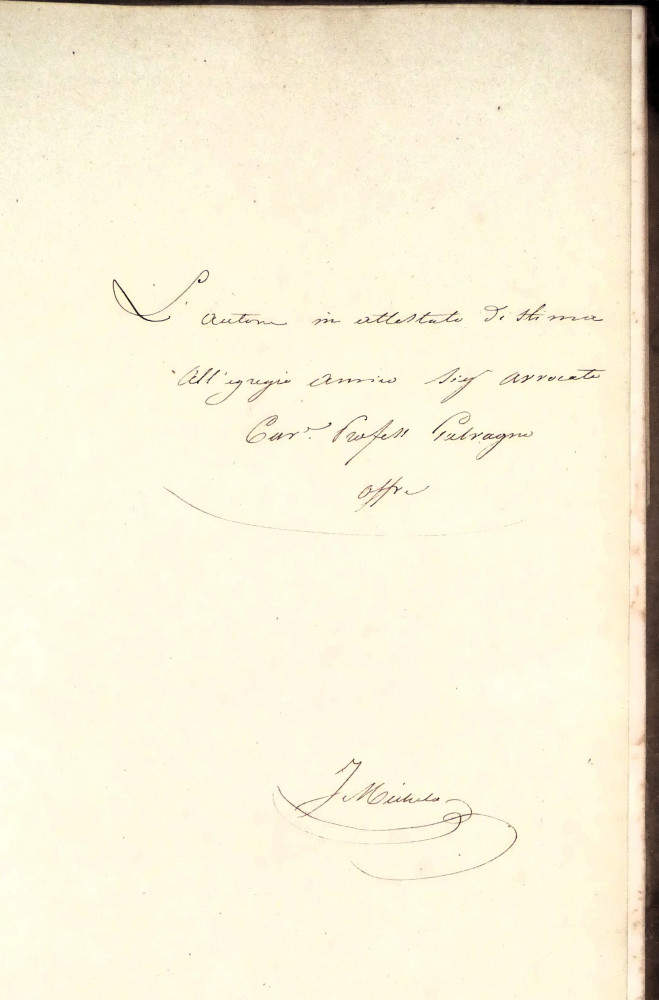 L'autore in attestato di stima
All'egregio amico Sig.r avvocato
Cav.r Profess Galvagno
offre
J Michela